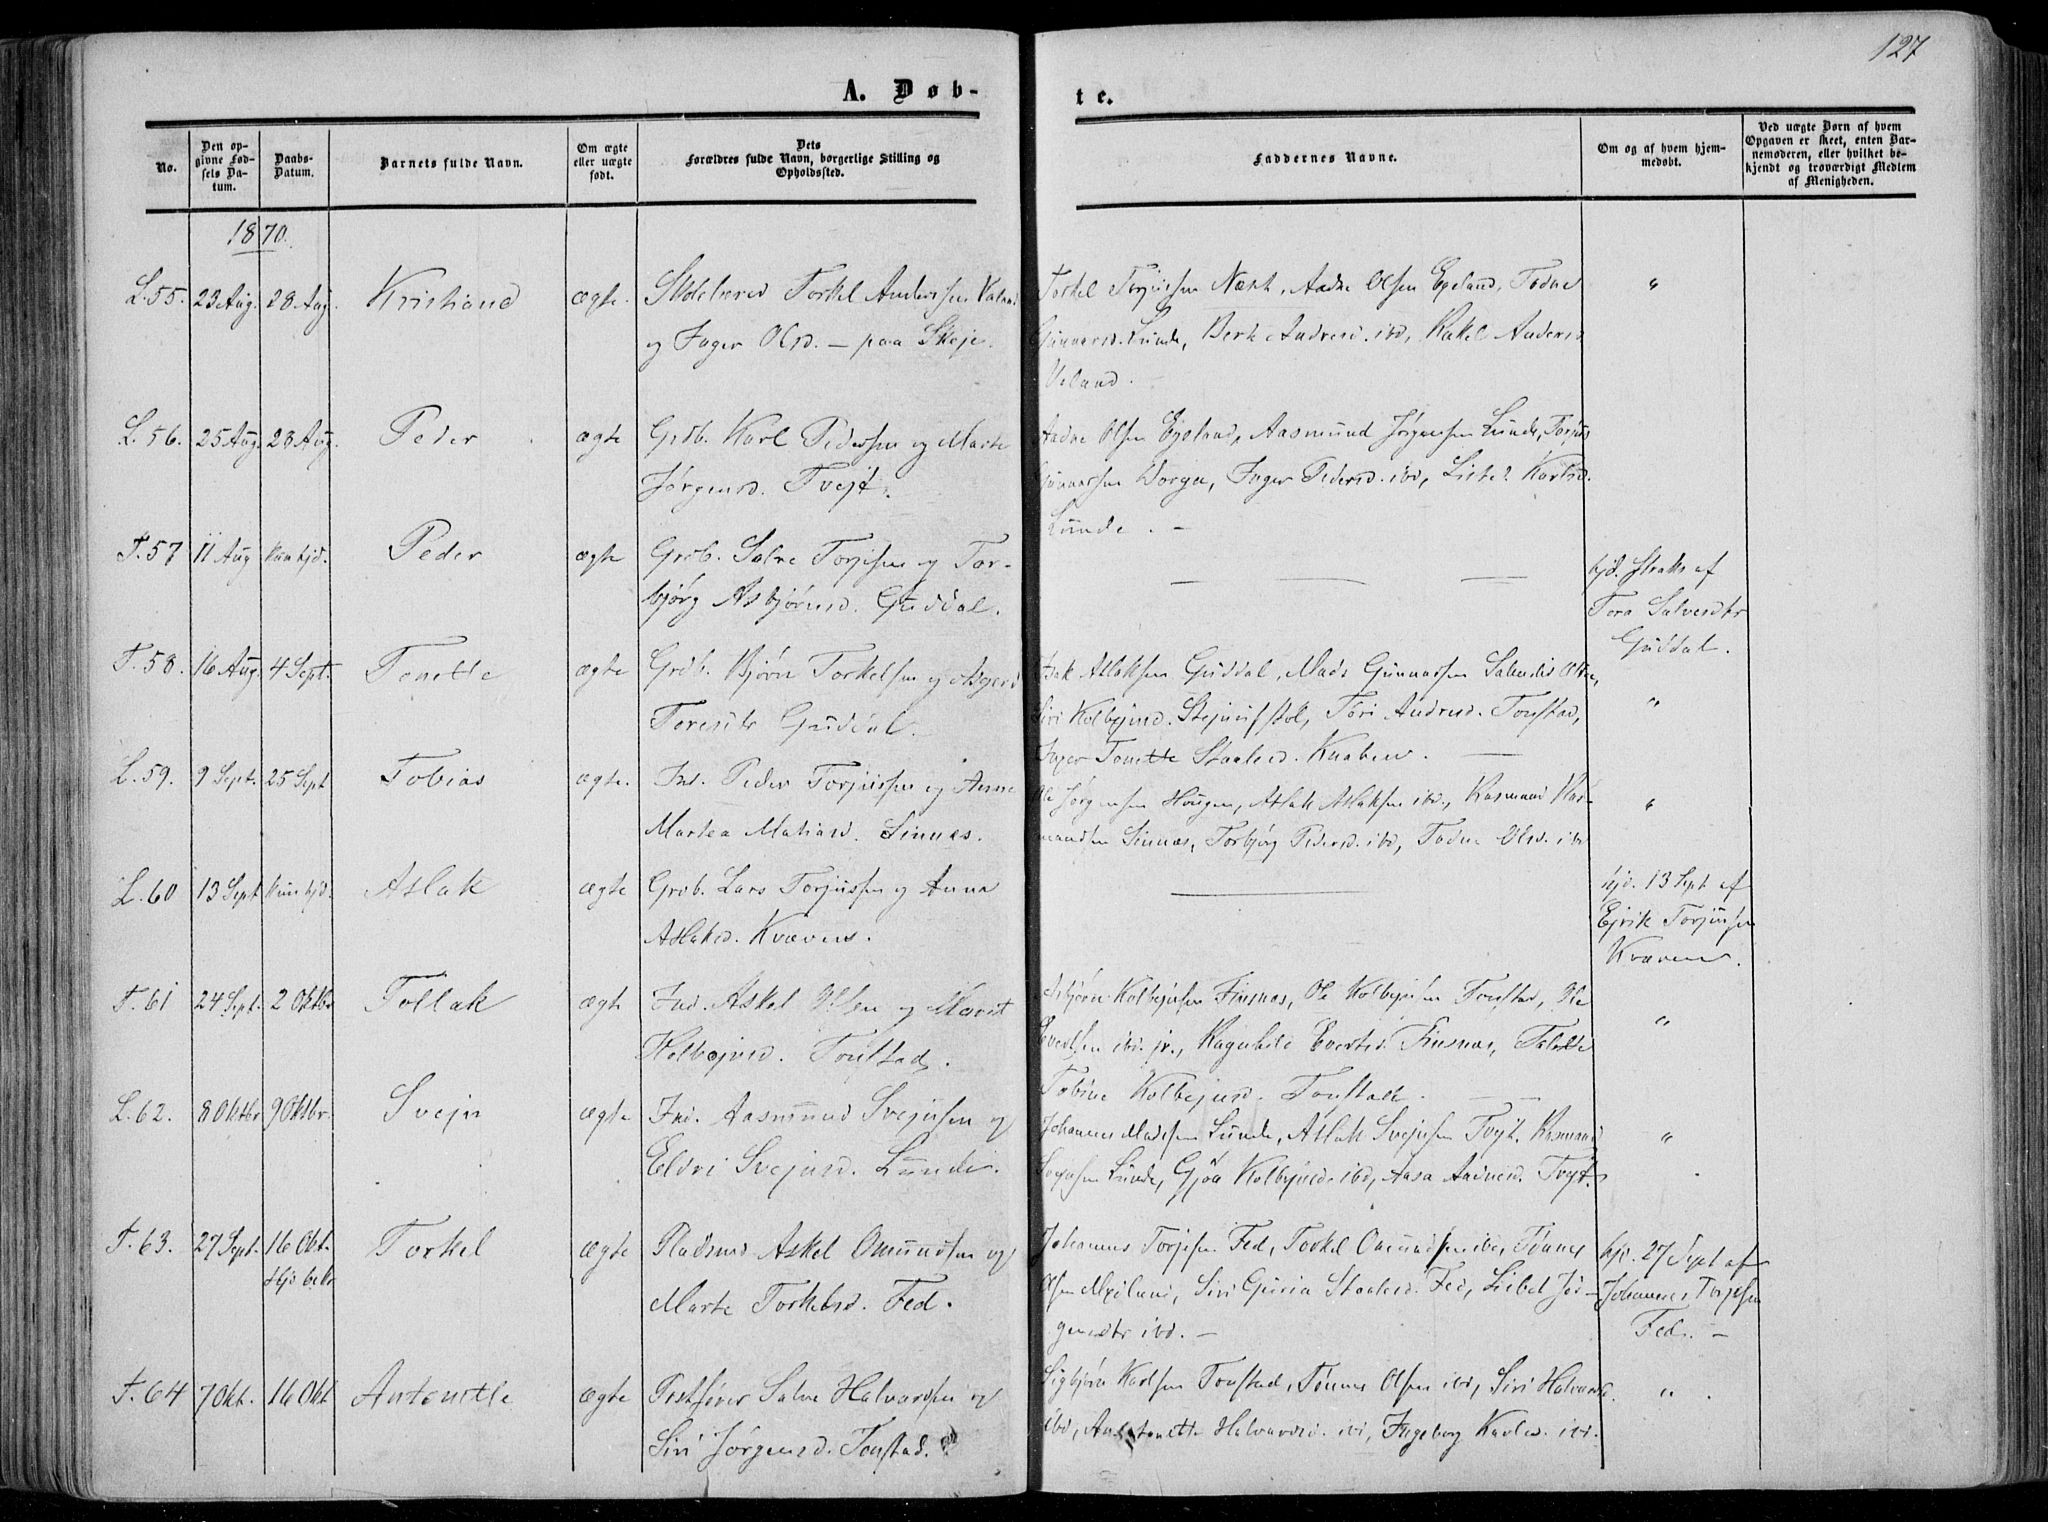 127
A. Døb-
te.
No.
Den op-
givne Fød-
sels Da-
tum.
Daabs-
Datum.
Barnets fulde Navn.
Om ægte
eller uægte
født.
Dets
Forældres fulde Navn, borgerlige Stilling og
Opholdssted.
Faddernes Navne.
Om og af hvem hjem-
medøbt.
Ved uægte Børn af hvem
Opgaven er skeet, enten Bar-
nemoderen, eller hvilket be-
kjendt og troværdigt Medlem
af Menigheden.
1870.
L. 55. 23 Aug. 28 Aug. Kristiane ægte. Torkel Anderssen
og Inger Olsd. — paa Skeje.
Torkel Torjussen Aadne Olsen Egeland, Tadne
Gunnarsd. Lunde, Berte ibd, Rakel Andersd
"
L. 56. 25 Aug. 28 Aug. Peder ægte Grdb. Karl Pedersen og Marte
Jørgensd. Tvejt.
Aadne Olsen Egeland, Aasmund Jørgensen Lunde, Torjus
Gunnarsen Dorge, Inger Pedersd. ibd, Karlsd.
Lunde. —
T. 57 11 Aug Kun hjd. Peder ægte Grdb. Salve Torjesen og Tor-
bjørg Asbjørnsd. Guddal.
— — —
hjd. straks af
Tora Salvesdtr
Guddal.
T. 58. 16 Aug. 4 Sept. Tonette ægte Grdb. Bjørn Torkelsen og
Guddal.
Isak Aslaksen Guddal, Mads Gunnarsen
Siri Kolbejnsd. Tori Andresd. Tonstad,
Inger Tonette Staalesd. Knaben. —
"
L. 59. 9 Sept. 25 Sept Tobias ægte. Ind. Peder Torjussen og Anne
Martea Matiasd. Sinnes.
Ole Jørgensen Hougen, Aslak Aslaksen ibd, Rasmund Ras-
mundsen Sinnæs, Torbjørg Pedersd. ibd, Tadne Olsd. ibd
"
L. 60 13 Sept Kun hjd. Aslak ægte Grdb. Lars Torjussen og Anna
Aslaksd. Kvæven.
—
hjd. 13 Sept af
Ejrik Torjussen
Kvæven.
T. 61 24 Sept. 2 Oktbr Tollak ægte Ind. Askel Olsen og Marit
Kolbejnsd. Tonstad.
Asbjørn Kolbejnsen Finsnæs, Ole Kolbejnsen Tonstad, Ole
Evertsen ibd. jr., Ragnhild Evertsd. Finsnæs,
Tobine Kolbejnsd. Tonstad. — —
"
L. 62. 8 Oktbr 9 Oktbr. Svejn ægte Ind. Aasmund Svejnsen og
Eldri Svejnsd. Lunde.
Johannes Madssen Lunde, Aslak Svejnsen Tvejt, Rasmund
Svejnsen Lunde, Gjøa Kolbejnsd. ibd, Aasa Aadnesd. Tvejt.
"
T. 63. 27 Sept. 16 Okt. Torkel ægte Pladsmd Askel Omundsen og
Hjd bekr
Marte Torkelsd. Fed.
Johannes Torjesen Fed, Torkel Omundsen ibd, Tønnes
Olsen Mejland, Siri Guria Staalesd. Fed, Lisbet Jør-
gensdtr ibd. —
hjd. 27 Sept af
Johannes Torjesen
Fed. —
T. 64 7 Okt. 16 Okt Antonette ægte Postfører Salve Halvardsen og
Siri Jørgensd. Tonstad.
Sigbjørn Karlsen Tonstad, Tønnes Olsen ibd, Siri Halvardsd.
ibd, Antonette Halvardsd. ibd, Ingeborg Karlsd. ibd.
"